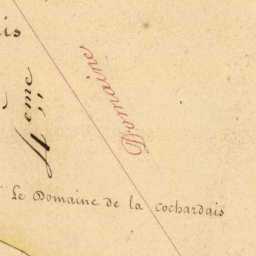 is
4ème
Domaine
Le Domaine de la Cochardais